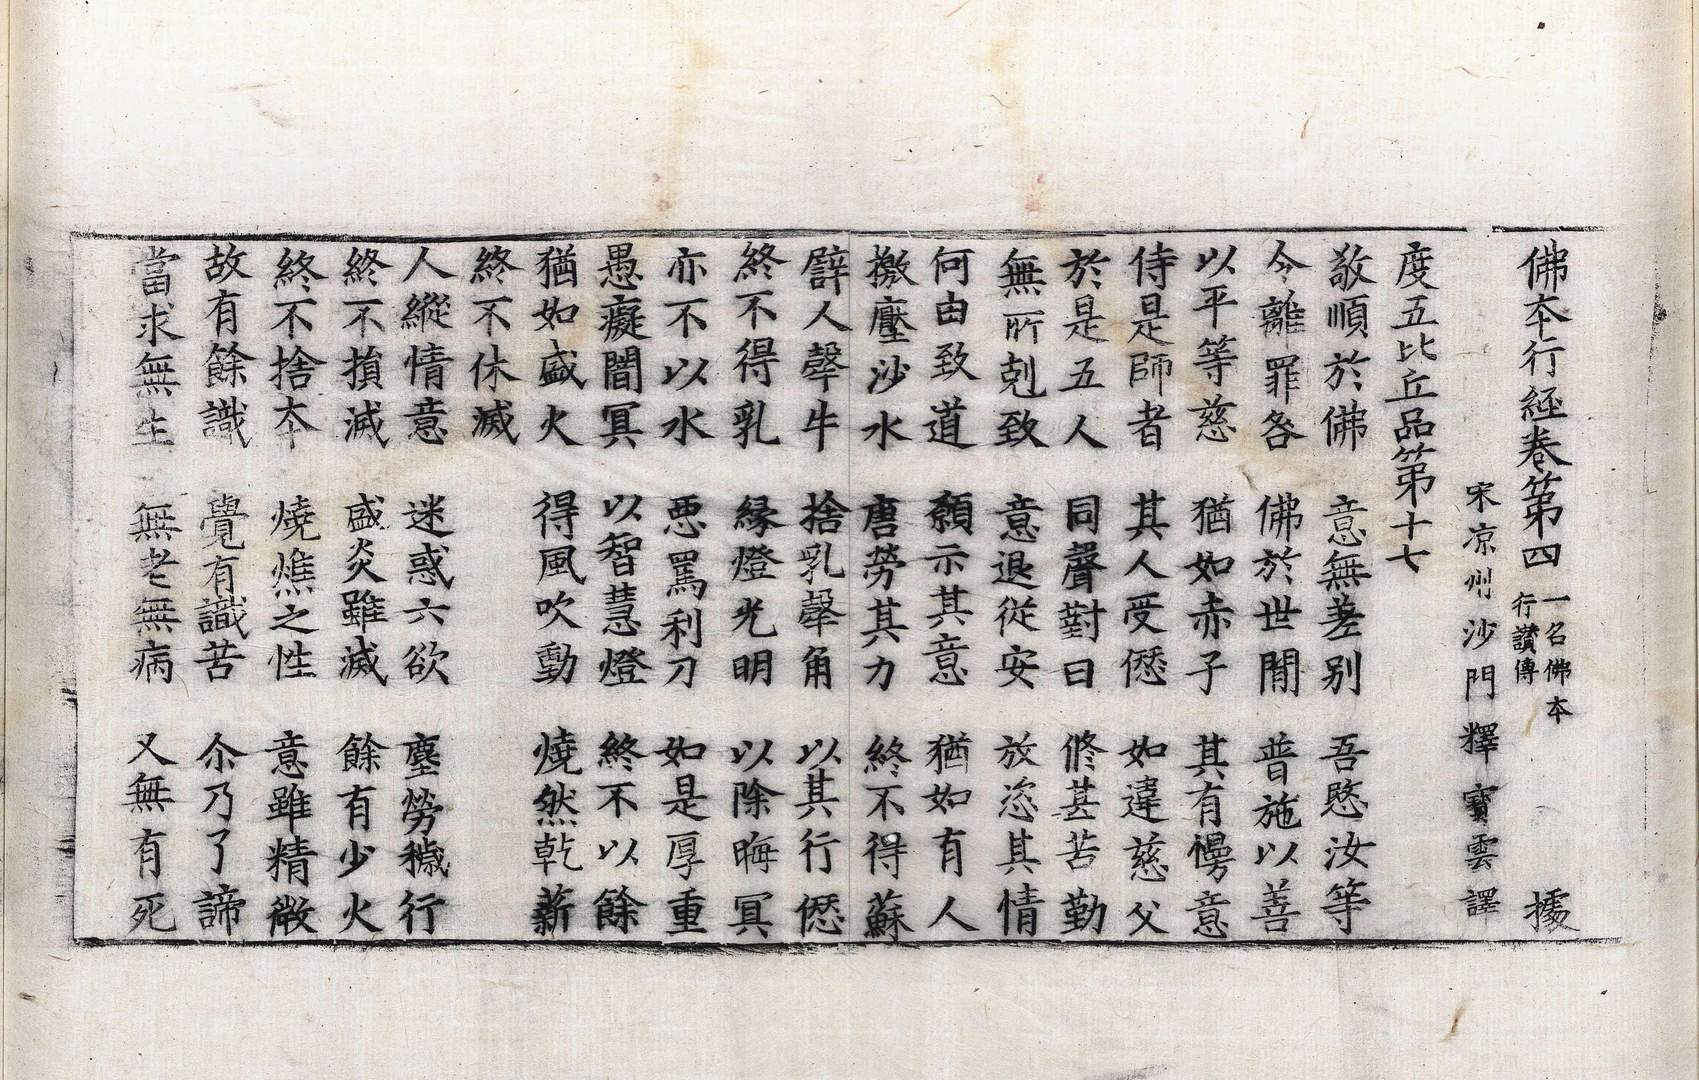 佛本行經卷第四 一名佛本行讃傳 據
宋涼州沙門釋寶雲譯
度五比丘品第十七
敬順於佛 意無差别 吾愍汝等
今離罪咎 佛於世閒 普施以善
以平等慈 猶如赤子 其有慢意
侍是師者 其人受𠎝 如違慈父
於是五人 同聲對曰 修甚苦勤
無所剋致 意退從安 放恣其情
何由致道 願示其意 猶如有人
撽壓沙水 唐勞其力 終不得蘇
譬人𤛗牛 捨乳𤛗角 以其行𠎝
終不得乳 縁燈光明 以除晦冥
亦不以水 惡罵利刀 如是厚重
愚癡闇冥 以智慧燈 終不以餘
猶如盛火 得風吹動 燒然乾薪
終不休滅
人縱情意 迷惑六欲 塵勞穢行
終不損滅 盛炎雖滅 餘有少火
終不捨本 燒燋之性 意雖精微
故有餘識 覺有識苦 尒乃了諦
當求無生 無老無病 又無有死